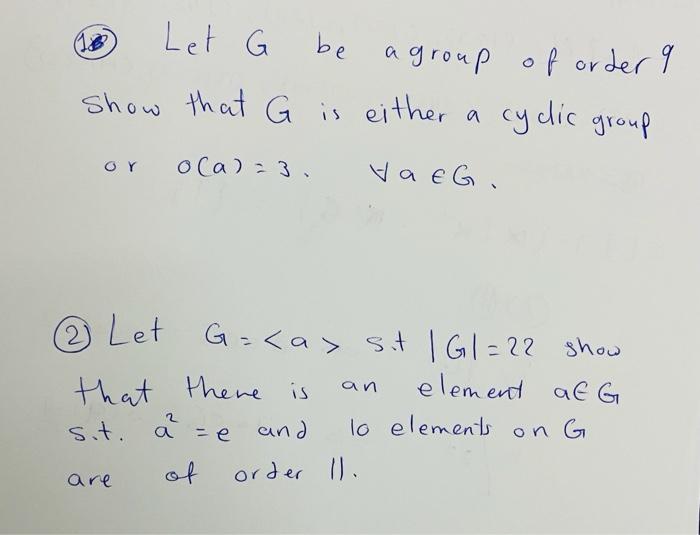 Let G be a group of order 9
Show that G is either a cyclic group
or o(a) = 3. ∀a ∈ G.
② Let G = <a> s.t |G| = 22 show
that there is an element a ∈ G
s.t. a² = e and 10 elements on G
are of order 11.